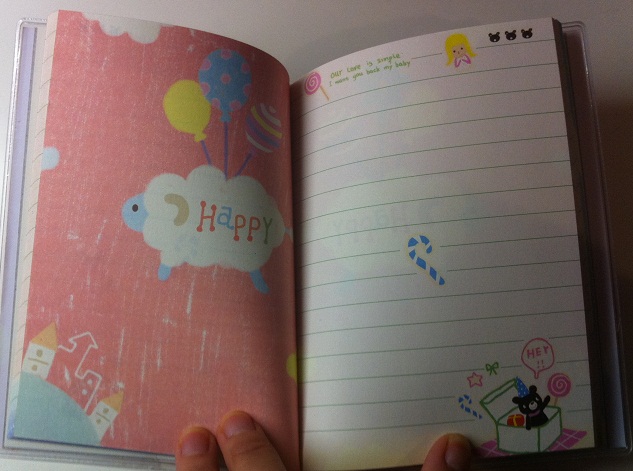 HaPPY
OUR Love is simple
I want you back my baby
HEY
!!